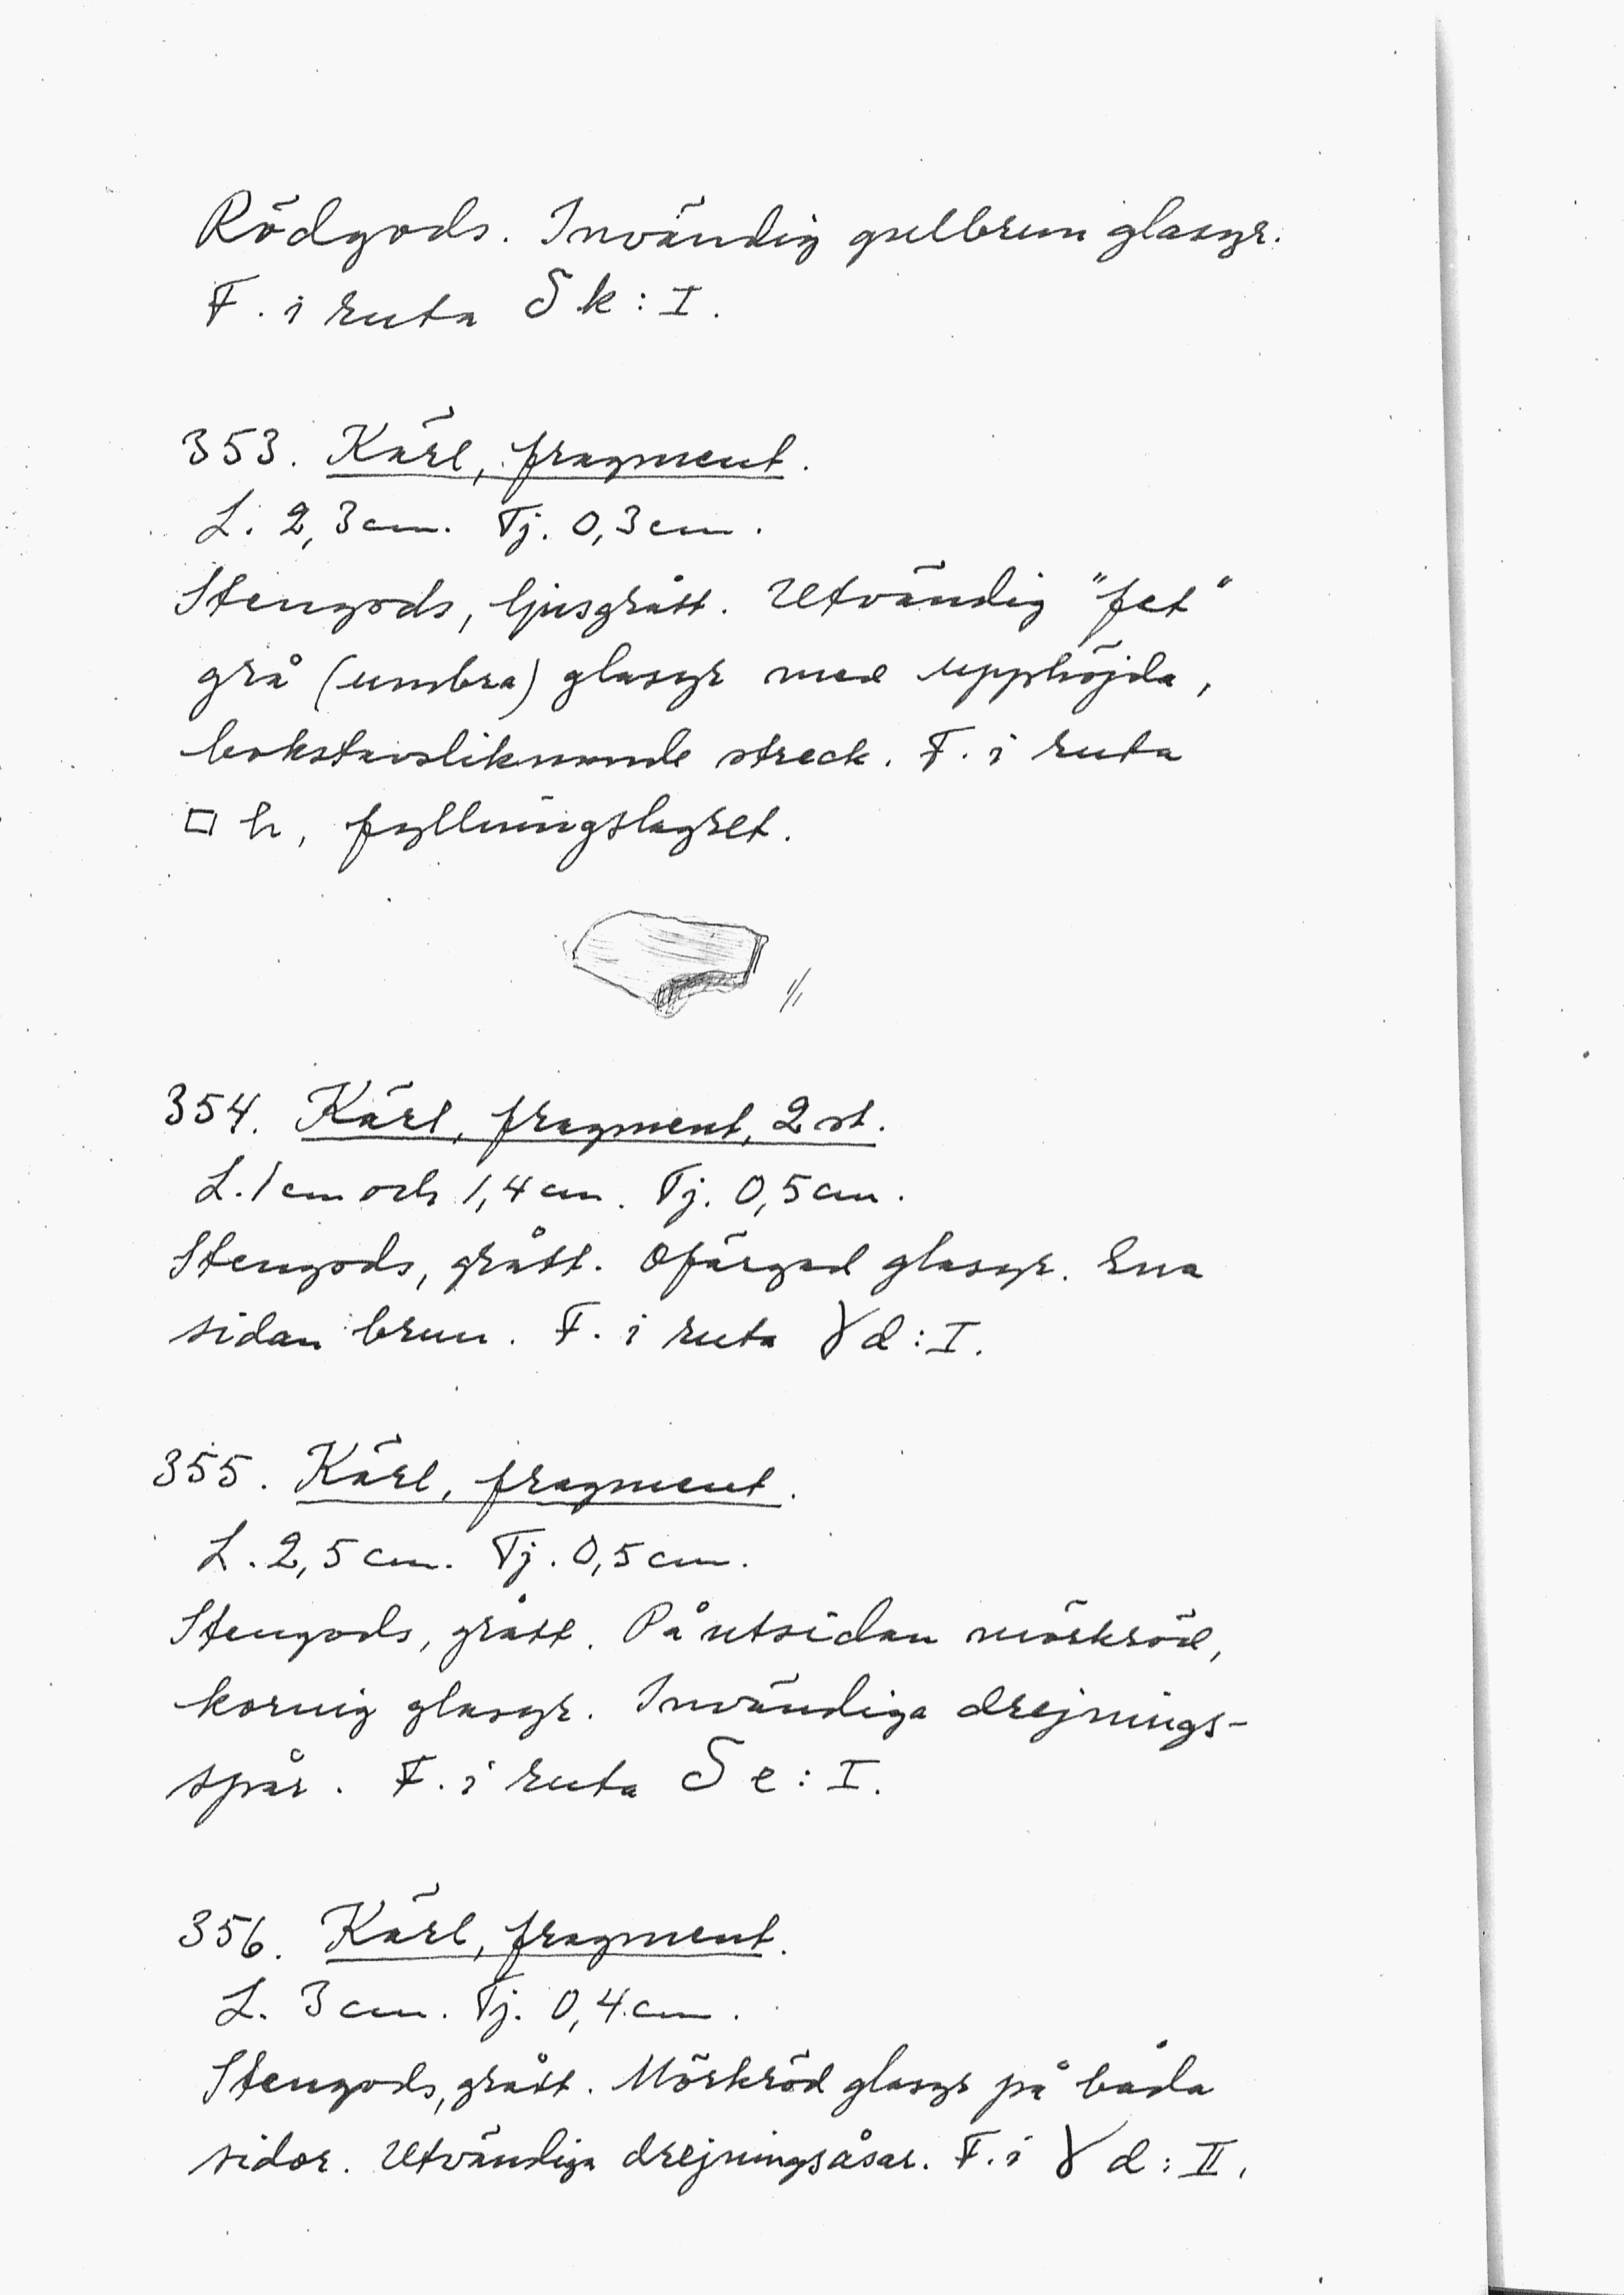 Rödgods. Invändig gulbrun glasyr.
F. i ruta δ k : I.
353. Kärl, fragment.
L. 2,3 cm. Tj. 0,3 cm.
Stengods, ljusgrått. Utvändig "fet"
grå (umbra) glasyr med upphöjda,
bokstavsliknande streck. F. i ruta
□ h, fyllningslagret.
1/1
354. Kärl, fragment, 2 st.
L. 1 cm och 1,4 cm. Tj. 0,5 cm.
Stengods, grått. Ofärgad glasyr. Ena
sidan brun. F. i ruta γ d : I.
355. Kärl, fragment.
L. 2,5 cm. Tj. 0,5 cm.
Stengods, grått. På utsidan mörkröd,
kornig glasyr. Invändiga drejnings-
spår. F. i ruta δ e : I.
356. Kärl, fragment.
L. 3 cm. Tj. 0,4 cm.
Stengods, grått. Mörkröd glasyr på båda
sidor. Utvändiga drejningsåsar. F. i γ d : II.